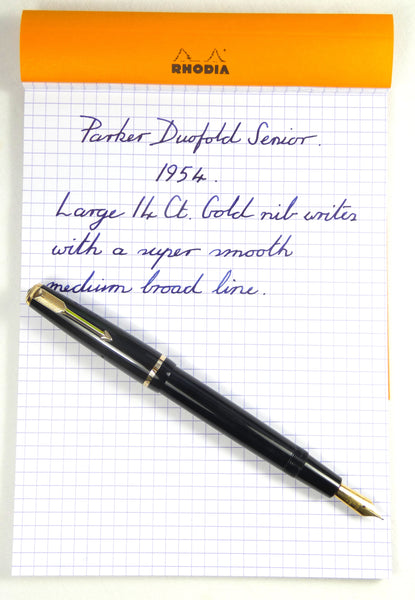 RHODIA
Parker Duofold Senior.
1954.
Large 14 Ct. Gold nib writes
with a super smooth
medium broad line.